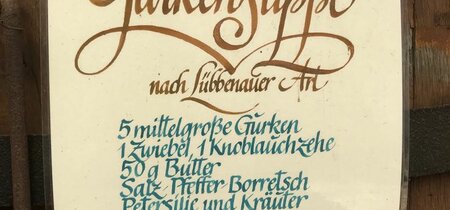 Gurkensuppe
nach Lübbenauer Art
5 mittelgroße Gurken
1 Zwiebel, 1 Knoblauchzehe
50 g Butter
Salz Pfeffer Borretsch
Petersilie und Kräuter